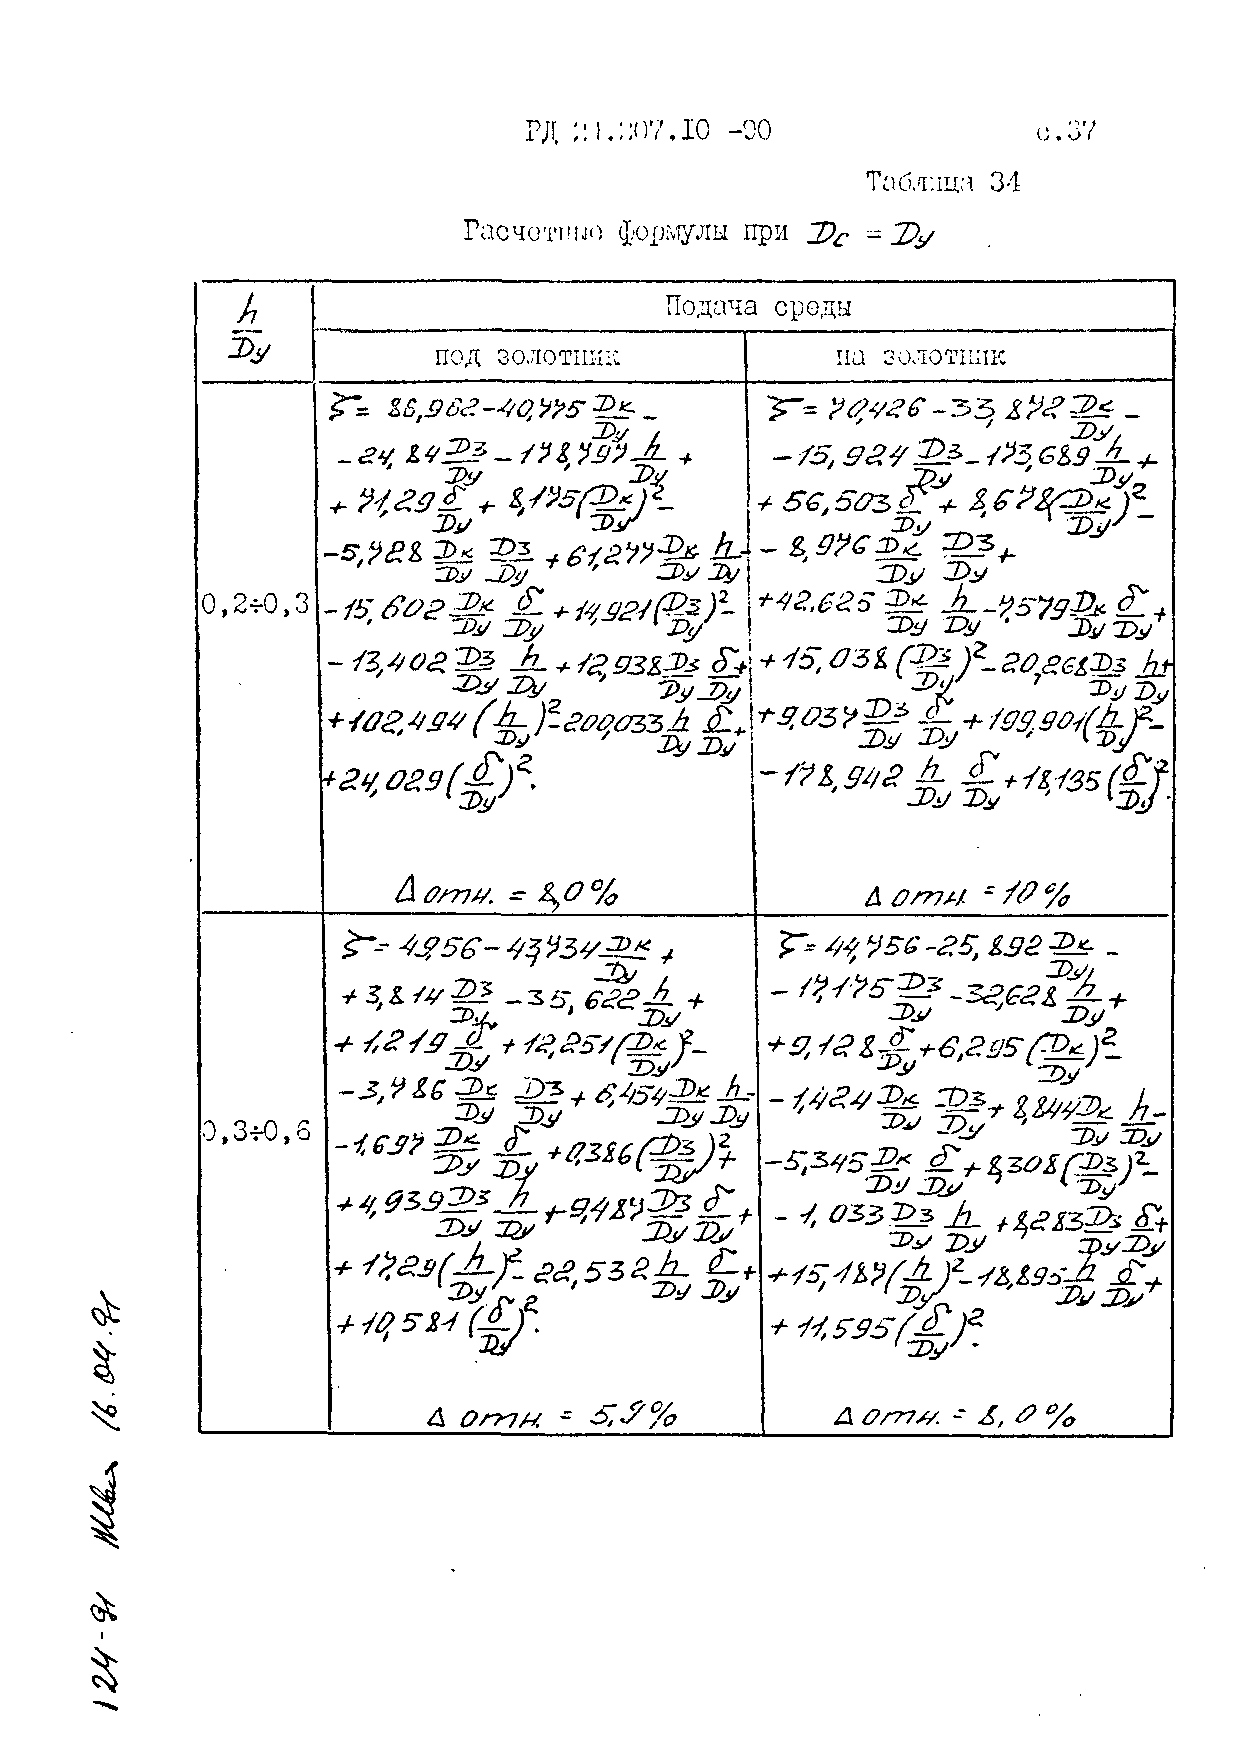 РД 21.207.10 -90 с.37
Таблица 34
Расчетные формулы при Dc = Dу
h/Dу
Подача среды
под золотник на золотник
0,2÷0,3
ζ = 86,962 - 40,775 Dк/Dу -
- 24,84 Dз/Dу - 178,797 h/Dу +
+ 71,29 δ/Dу + 8,175 (Dк/Dу)² -
- 5,728 Dк/Dу Dз/Dу + 61,277 Dк/Dу h/Dу -
- 15,602 Dк/Dу δ/Dу + 14,921 (Dз/Dу)² -
- 13,402 Dз/Dу h/Dу + 12,938 Dз/Dу δ/Dу +
+ 102,494 (h/Dу)² - 200,033 h/Dу δ/Dу +
+ 24,029 (δ/Dу)².
Δ отн. = 8,0 %
ζ = 70,426 - 33,872 Dк/Dу -
- 15,924 Dз/Dу - 173,689 h/Dу +
+ 56,503 δ/Dу + 8,678 (Dк/Dу)² -
- 8,976 Dк/Dу Dз/Dу +
+ 42,625 Dк/Dу h/Dу - 7,579 Dк/Dу δ/Dу +
+ 15,038 (Dз/Dу)² - 20,268 Dз/Dу h/Dу +
+ 9,037 Dз/Dу δ/Dу + 199,901 (h/Dу)² -
- 178,942 h/Dу δ/Dу + 18,135 (δ/Dу)².
Δ отн. = 10 %
0,3÷0,6
ζ = 49,56 - 43,734 Dк/Dу +
+ 3,814 Dз/Dу - 35,622 h/Dу +
+ 1,219 δ/Dу + 12,251 (Dк/Dу)² -
- 3,786 Dк/Dу Dз/Dу + 6,454 Dк/Dу h/Dу -
- 1,697 Dк/Dу δ/Dу + 0,386 (Dз/Dу)² +
+ 4,939 Dз/Dу h/Dу + 9,487 Dз/Dу δ/Dу +
+ 17,29 (h/Dу)² - 22,532 h/Dу δ/Dу +
+ 10,581 (δ/Dу)².
Δ отн. = 5,9 %
ζ = 44,756 - 25,892 Dк/Dу -
- 17,175 Dз/Dу - 32,628 h/Dу +
+ 9,128 δ/Dу + 6,295 (Dк/Dу)² -
- 1,424 Dк/Dу Dз/Dу + 8,844 Dк/Dу h/Dу -
- 5,345 Dк/Dу δ/Dу + 8,308 (Dз/Dу)² -
- 1,033 Dз/Dу h/Dу + 8,283 Dз/Dу δ/Dу +
+ 15,187 (h/Dу)² - 18,895 h/Dу δ/Dу +
+ 11,595 (δ/Dу)².
Δ отн. = 8,0 %
124-91 16.04.91